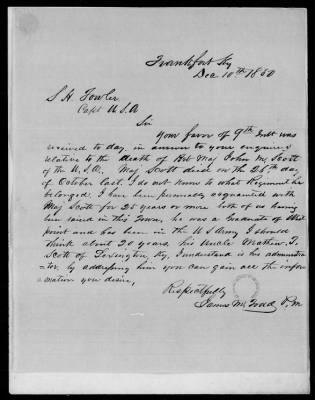 Frankfort Ky
Dec 10th 1850
S. H. Fowler
Capt U.S.A
Sir
Your favor of 9th Inst was
received to day, in answer to your enquiries
relative to the death of Bvt Maj John M. Scott
of the U.S.A. Maj Scott died on the 26th day
of October last. I do not know to what Regiment he
belonged. I have been personally acquainted with
Maj Scott for 25 years or more both of us having
been raised in this Town, he was a Graduate of West
point and has been in the U S Army I should
think about 20 years, his Uncle Mathew T.
Scott of Lexington, Ky, I understand is his administra
=tor, by addressing him you can gain all the infor
=mation you desire,
Respectfully
James M. Todd P.M